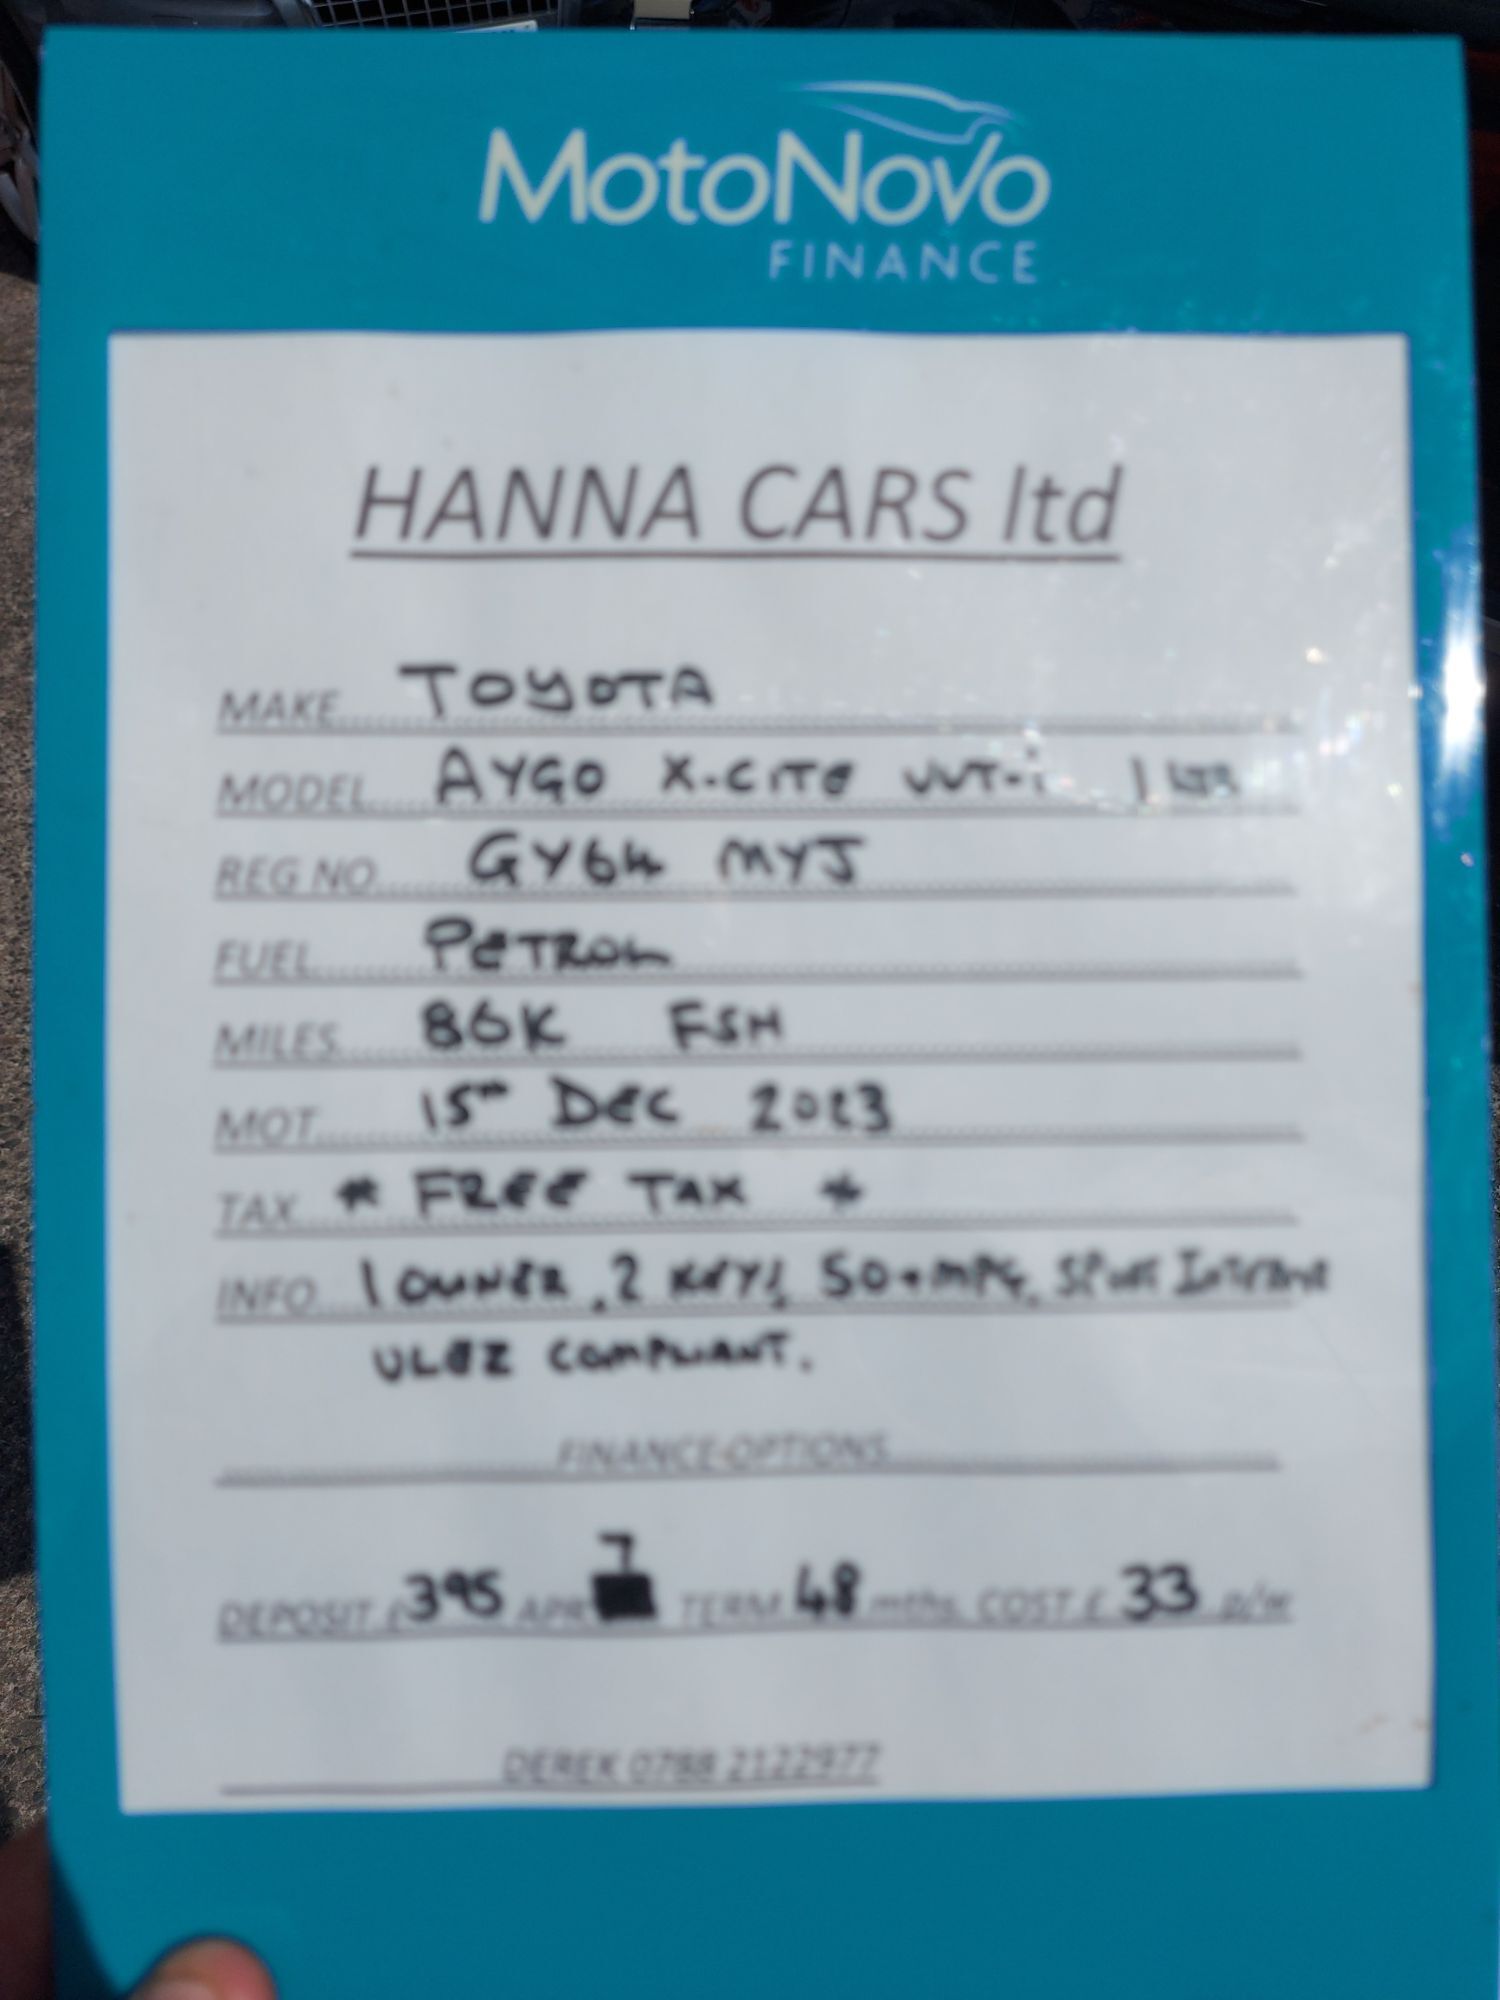 MotoNovo
FINANCE
HANNA CARS ltd
MAKE TOYOTA
MODEL AYGO X-CITE VVT-i 1 LTR
REG NO GY64 MYJ
FUEL PETROL
MILES 86K FSH
MOT 15TH DEC 2023
TAX * FREE TAX *
INFO 1 OWNER, 2 KEYS, 50+MPG, SPORT INTERIOR
ULEZ COMPLIANT.
FINANCE OPTIONS
DEPOSIT £395 APR 7 TERM 48 mths COST £ 33 p/w
DEREK 0788 2122977